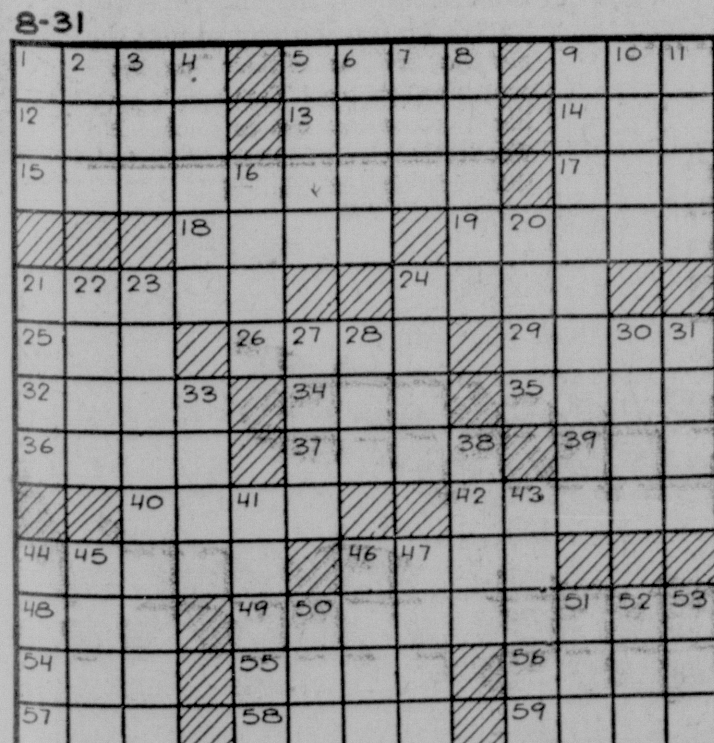 8-31
1 2 3 4 5 6 7 8 9 10 11
12 13 14
15 16 17
18 19 20
21 22 23 24
25 26 27 28 29 30 31
32 33 34 35
36 37 38 39
40 41 42 43
44 45 46 47
48 49 50 51 52 53
54 55 56
57 58 59